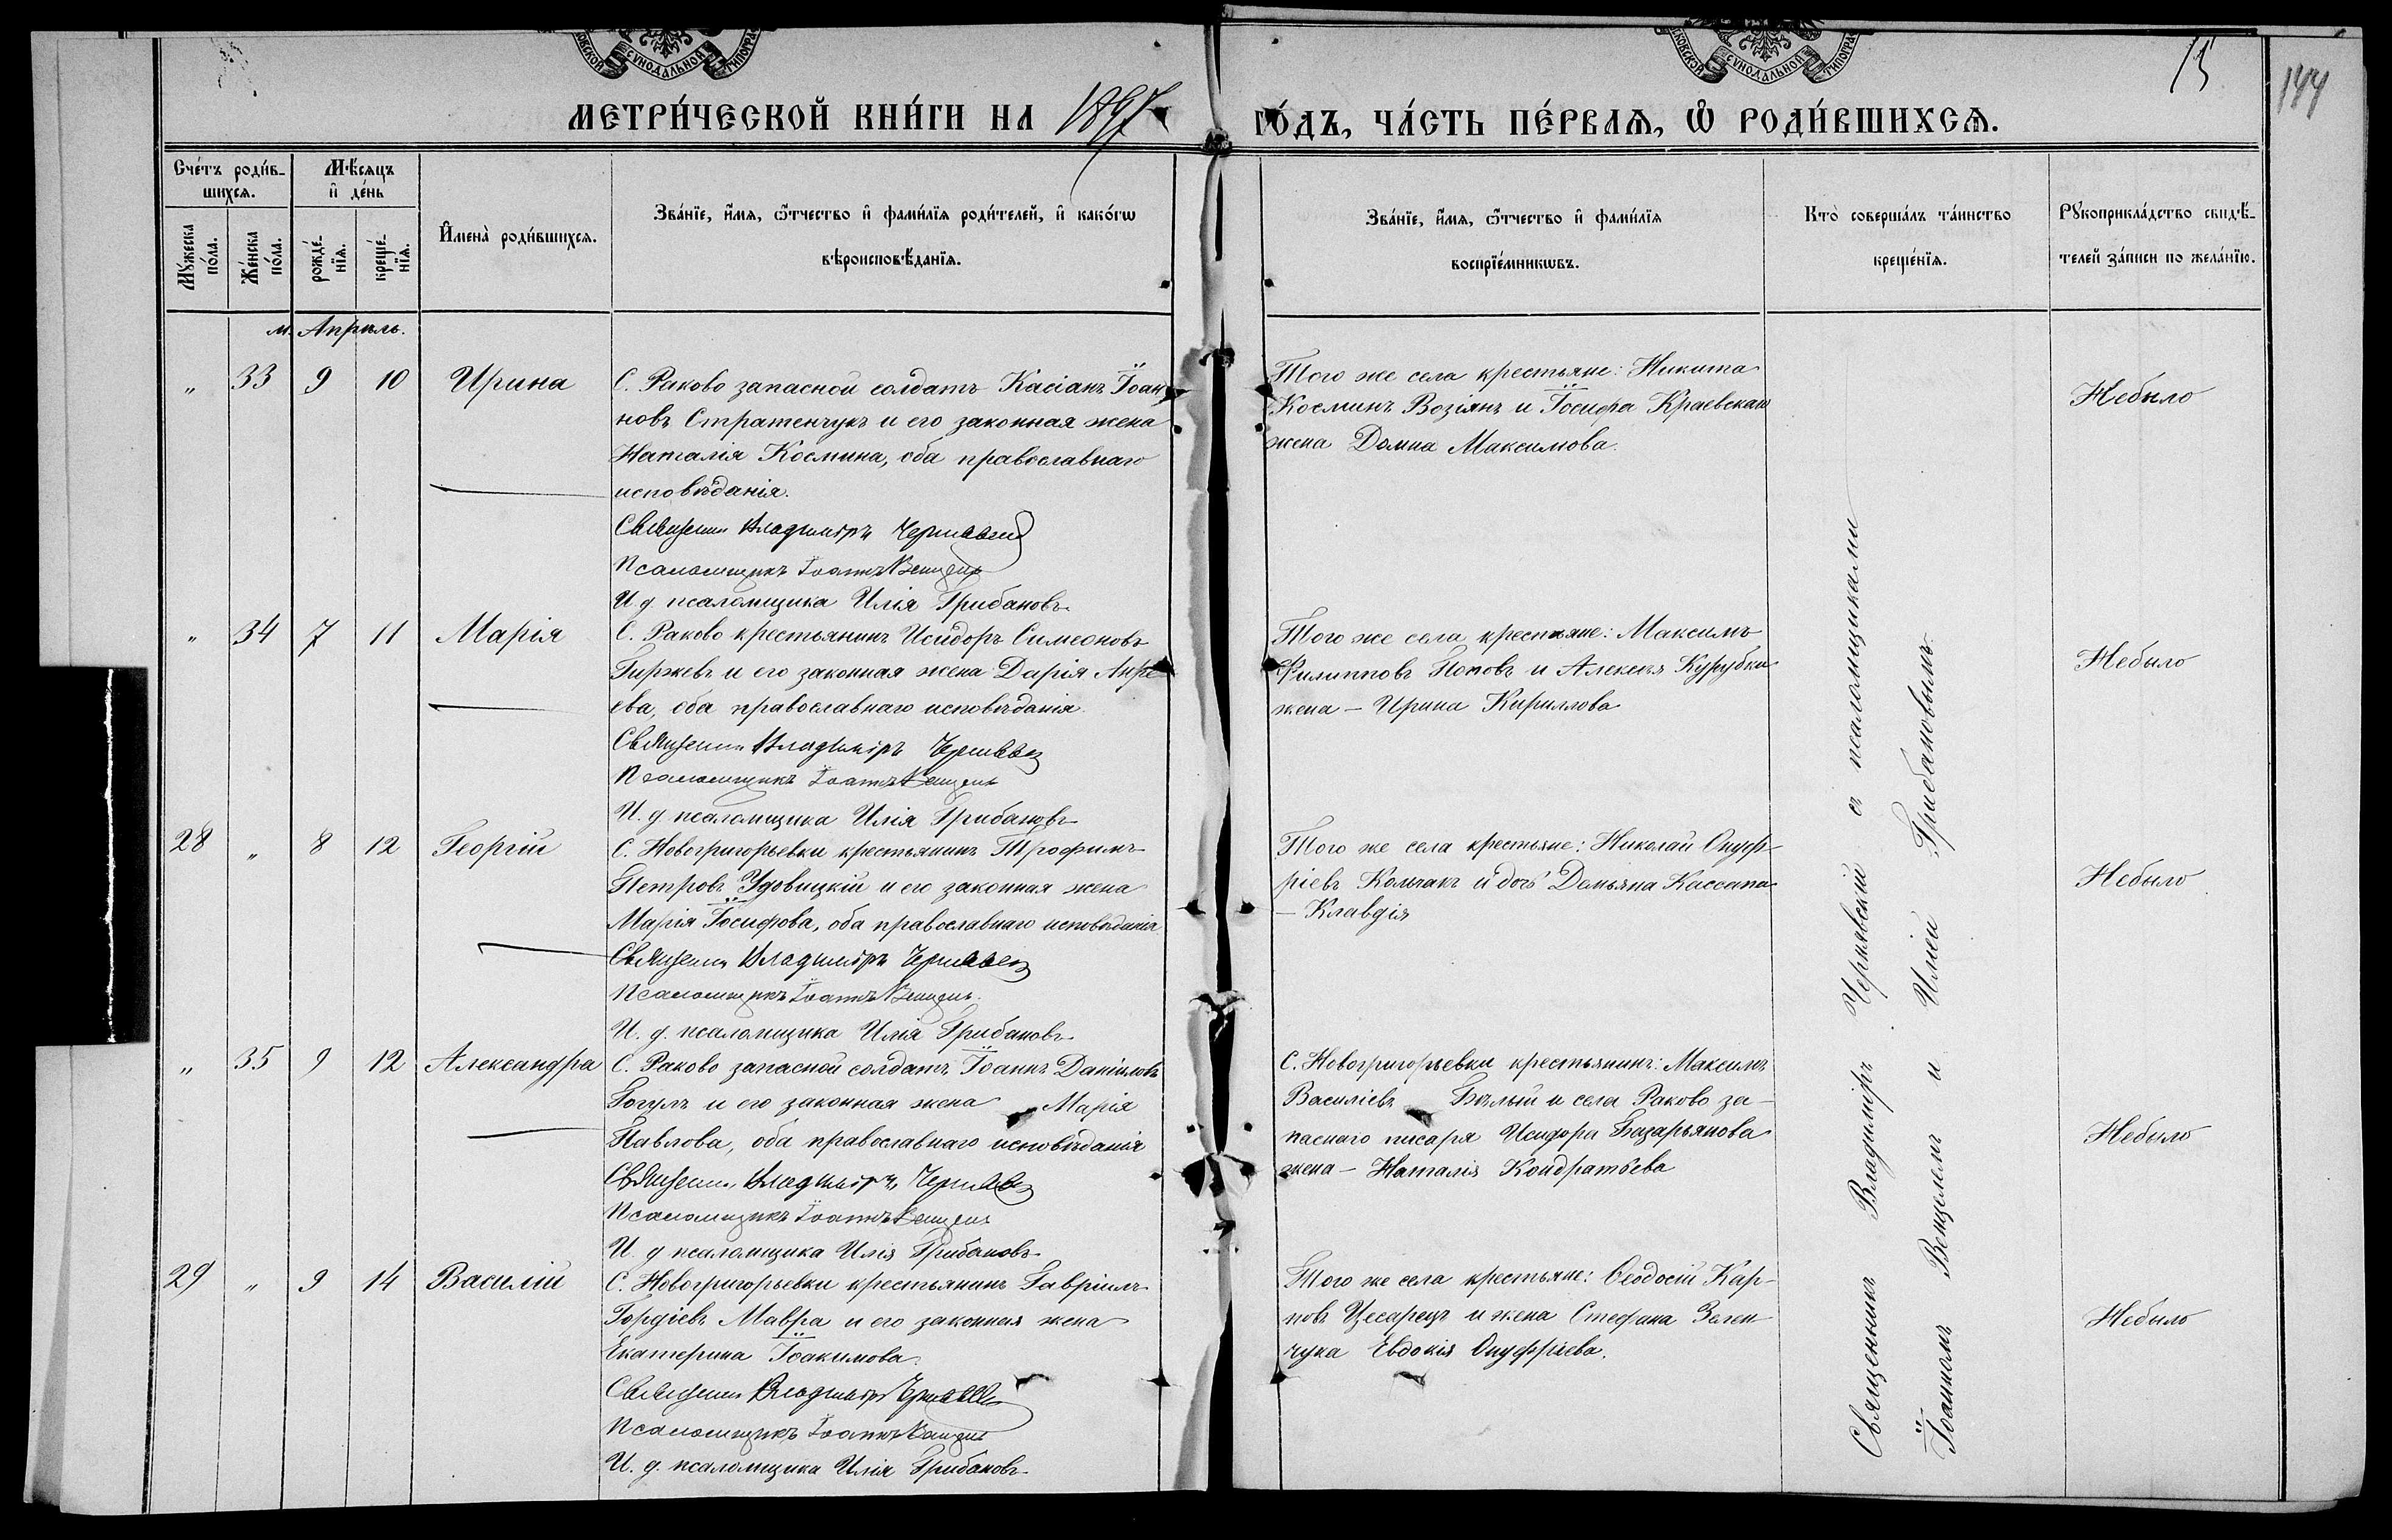 МЕТРИ́ЧЕСКОЙ КНИ́ГИ НА 1897 ГО́ДЪ, ЧА́СТЬ ПЕ́РВАѦ, Ѡ҆ РОДИ́ВШИХСѦ.
15
144
Сче́тъ роди́в-
шихсѧ.
Мѣ́сѧцъ
и҆ де́нь
Мꙋ́жеска
по́ла.
Же́нска
по́ла.
рожде́-
нїѧ.
креще́-
нїѧ.
И҆мена̀ роди́вшихсѧ.
Зва́нїе, и҆́мѧ, ѻ҆́тчество и҆ фами́лїѧ роди́телей, и҆ како́гѡ
вѣроисповѣ́данїѧ.
Зва́нїе, и҆́мѧ, ѻ҆́тчество и҆ фами́лїѧ
воспрїе́мникѡвъ.
Кто̀ соверша́лъ та́инство
креще́нїѧ.
Рꙋкоприкла́дство свидѣ́-
телей за́писи по жела́нїю.
м. Апрѣль.
„ 33 9 10 Ирина
С. Раково запасной солдатъ Касіанъ Іоан-
новъ Стратенчукъ и его законная жена
Наталія Космина, оба православнаго
исповѣданія.
Священн. Владиміръ Чернявскій
Псаломщикъ Іоаннъ Венцель
И. д. псаломщика Илія Грибановъ
Того же села крестьяне: Никита
Косминъ Возіянъ и Іосифа Краевскаго
жена Домна Максимова.
Небыло
„ 34 7 11 Марія
С. Раково крестьянинъ Исидоръ Симеоновъ
Гиржевъ и его законная жена Дарія Андре
ева, оба православнаго исповѣданія.
Священн. Владиміръ Чернявскій
Псаломщикъ Іоаннъ Венцель
И. д. псаломщика Илія Грибановъ
Того же села крестьяне: Максимъ
Филипповъ Поповъ и Алексѣя Курубки
жена – Ирина Кириллова
Небыло
28 „ 8 12 Георгій
С. Новогригорьевки крестьянинъ Трофимъ
Петровъ Удовицкій и его законная жена
Марія Іосифова, оба православнаго исповѣданія
Священн. Владиміръ Чернявскій
Псаломщикъ Іоаннъ Венцель
И. д. псаломщика Илія Грибановъ
Того же села крестьяне: Николай Онуф-
ріевъ Колчакъ и дочь Демьяна Кассапа
– Клавдія
Небыло
„ 35 9 12 Александра
С. Раково запасной солдатъ Іоаннъ Даніиловъ
Гогулъ и его законная жена Марія
Павлова, оба православнаго исповѣданія
Священн. Владиміръ Чернявскій
Псаломщикъ Іоаннъ Венцель
И. д. псаломщика Илія Грибановъ
С. Новогригорьевки крестьянинъ: Максимъ
Василіевъ Бѣлый и села Раково за-
паснаго писаря Исидора Базарьянова
жена – Наталія Кондратьева
Небыло
29 „ 9 14 Василій
С. Новогригорьевки крестьянинъ Гавріилъ
Гордіевъ Мавра и его законная жена
Екатерина Іоакимова.
Священн. Владиміръ Чернявскій
Псаломщикъ Іоаннъ Венцель
И. д. псаломщика Илія Грибановъ
Того же села крестьяне: Ѳеодосій Кар-
повъ Цесарецъ и жена Стефана Зелен-
чука Евдокія Онуфріева.
Небыло
Священникъ Владиміръ Чернявскій с псаломщиками
Іоанномъ Венцелемъ и Иліей Грибановымъ